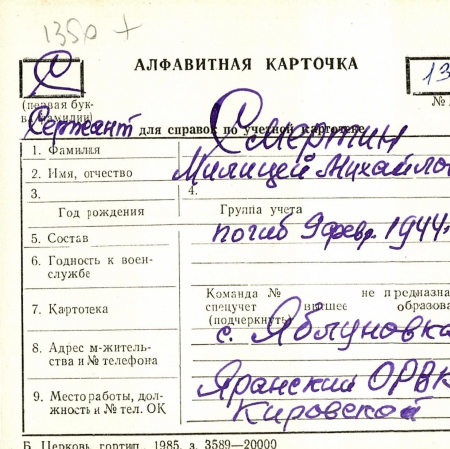 1350 +
С
АЛФАВИТНАЯ КАРТОЧКА
13
(первая бук-
ва фамилии)
№
Сержант для справок по учетной картотеке
1. Фамилия Смертин
2. Имя, отчество Милицей Михайло
3. 4.
Год рождения Группа учета
5. Состав погиб 9 февр. 1944
6. Годность к воен-
службе
Команда № не предназна
7. Картотека спецучет высшее образова
(подчеркнуть)
с. Яблуновка
8. Адрес м-житель-
ства и № телефона
Яранский ОРВК
9. Место работы, дол-
жность и № тел. ОК
Кировской
Б. Церковь, гортип., 1985, з. 3589—20000